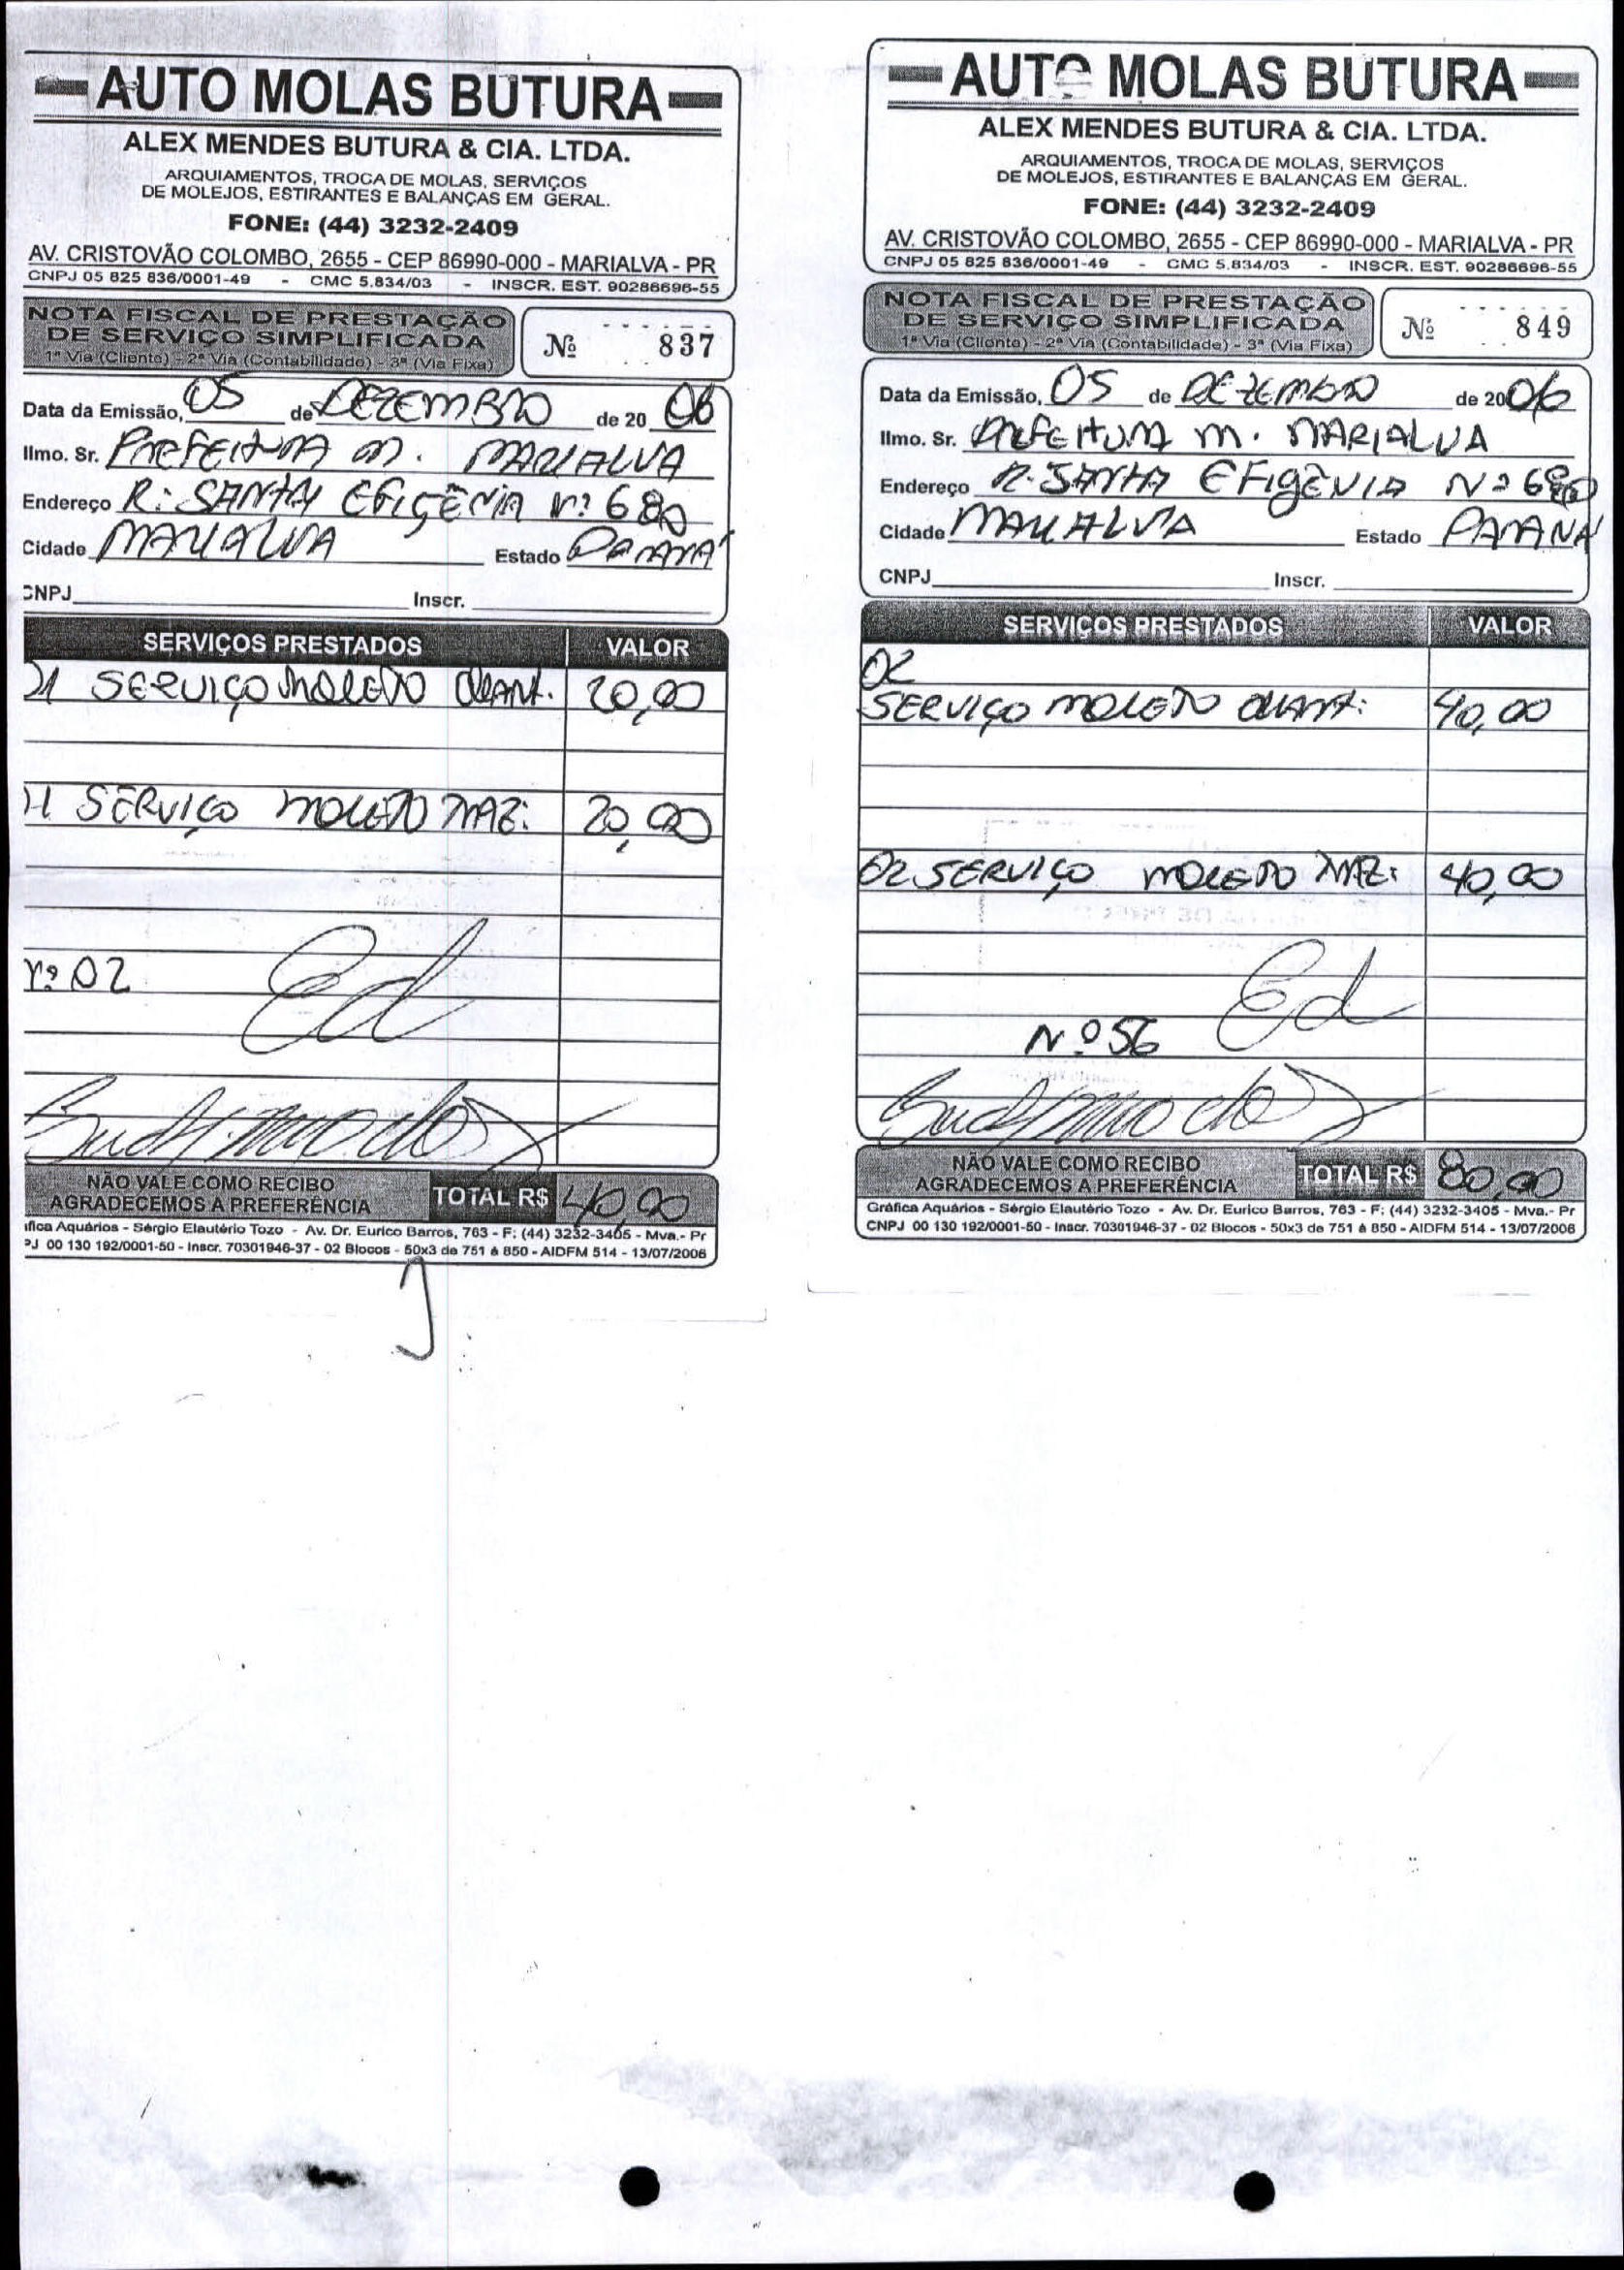 AUTO MOLAS BUTURA
ALEX MENDES BUTURA & CIA. LTDA.
ARQUIAMENTOS, TROCA DE MOLAS, SERVIÇOS
DE MOLEJOS, ESTIRANTES E BALANÇAS EM GERAL.
FONE: (44) 3232-2409
AV. CRISTOVÃO COLOMBO, 2655 - CEP 86990-000 - MARIALVA - PR
CNPJ 05 825 836/0001-49 - CMC 5.834/03 - INSCR. EST. 90286696-55
NOTA FISCAL DE PRESTAÇÃO
DE SERVIÇO SIMPLIFICADA
1ª Via (Cliente) - 2ª Via (Contabilidade) - 3ª (Via Fixa)
Nº 837
Data da Emissão, 05 de DEZEMBRO de 20 06
Ilmo. Sr. PREFEITURA M. MARIALVA
Endereço R: SANTA EFIGÊNIA Nº 680
Cidade MARIALVA Estado PARANÁ
CNPJ Inscr.
SERVIÇOS PRESTADOS VALOR
01 SERVIÇO MOLEJO DIANT. 20,00
01 SERVIÇO MOLEJO TRAZ: 20,00
Nº 02
NÃO VALE COMO RECIBO
AGRADECEMOS A PREFERÊNCIA
TOTAL R$ 40,00
áfica Aquários - Sérgio Elautério Tozo - Av. Dr. Eurico Barros, 763 - F: (44) 3232-3405 - Mva.- Pr
PJ 00 130 192/0001-50 - Inscr. 70301946-37 - 02 Blocos - 50x3 de 751 à 850 - AIDFM 514 - 13/07/2006
AUTO MOLAS BUTURA
ALEX MENDES BUTURA & CIA. LTDA.
ARQUIAMENTOS, TROCA DE MOLAS, SERVIÇOS
DE MOLEJOS, ESTIRANTES E BALANÇAS EM GERAL.
FONE: (44) 3232-2409
AV. CRISTOVÃO COLOMBO, 2655 - CEP 86990-000 - MARIALVA - PR
CNPJ 05 825 836/0001-49 - CMC 5.834/03 - INSCR. EST. 90286696-55
NOTA FISCAL DE PRESTAÇÃO
DE SERVIÇO SIMPLIFICADA
1ª Via (Cliente) - 2ª Via (Contabilidade) - 3ª (Via Fixa)
Nº 849
Data da Emissão, 05 de DEZEMBRO de 2006
Ilmo. Sr. PREFEITURA M. MARIALVA
Endereço R. SANTA EFIGÊNIA Nº 680
Cidade MARIALVA Estado PARANÁ
CNPJ Inscr.
SERVIÇOS PRESTADOS VALOR
02
SERVIÇO MOLEJO DIANT: 40,00
02 SERVIÇO MOLEJO TRAZ: 40,00
Nº 56
NÃO VALE COMO RECIBO
AGRADECEMOS A PREFERÊNCIA
TOTAL R$ 80,00
Gráfica Aquários - Sérgio Elautério Tozo - Av. Dr. Eurico Barros, 763 - F: (44) 3232-3405 - Mva.- Pr
CNPJ 00 130 192/0001-50 - Inscr. 70301946-37 - 02 Blocos - 50x3 de 751 à 850 - AIDFM 514 - 13/07/2006